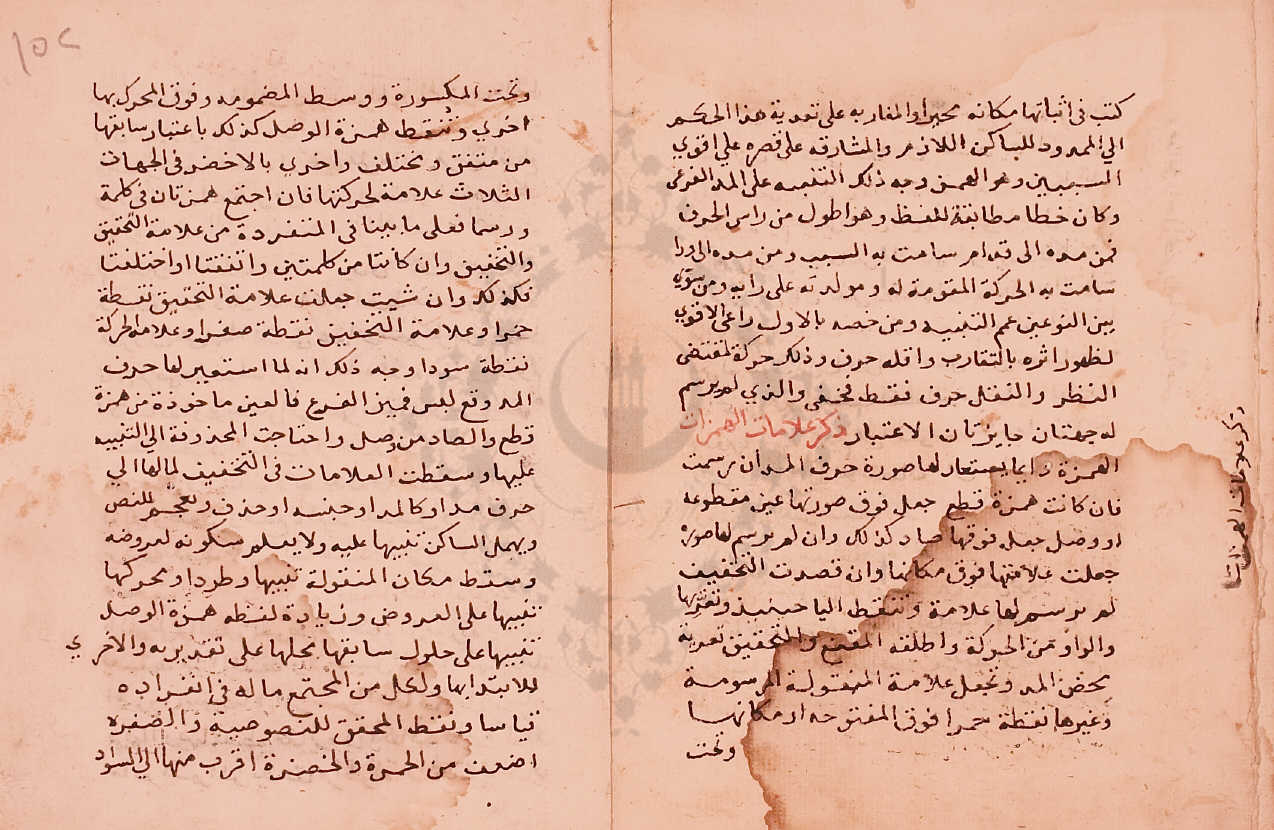 كتب في اثباتها مكانه محيرا والمغاربه على تعدية هذا الحكم
الي الممدود للساكن اللازم والمشارقه على قصره علي اقوي
السببين وهو الهمز وجه ذلك التنبيه على المد الفرعى
وكان خطا مطابقة للفظ وهو اطول من راس الحرف
فمن مده الى قدام سامت به السبب ومن مده الى ورا
سامت به الحركة المقومة له ومولدته على رايه ومن سوي
بين النوعين عمم التنبيه ومن خصه بالاول راعى الاقوي
لظهور اثره بالتقارب واقله حرف وذلك حركة لمقتضى
النظر والنقل حرف فقط فخفي والذي لم يرسم
له جهتان جايزتان الاعتبار ذكر علامات الهمزات
الهمزة دايما يستعار لها صورة حرف المد ان رسمت
فان كانت همزة قطع جعل فوق صورتها عين مقطوعه
او وصل جعل فوقها صاد كذلك وان لم يرسم لها صورة
جعلت علامتها فوق مكانها وان قصدت التخفيف
لم يرسم لها علامة وتنقط اليا حينيذ وتعريها
والواو عن الحركة واطلقه المقنع والتحقيق تعرية
محض المد وتجعل علامة المنقولة المرسومة
وغيرها نقطة حمرا فوق المفتوحه او مكانها
وتحت
ذكر علامات الهمزات
١٥٢
وتحت المكسورة ووسط المضمومه وفوق المحرك بها
اخري وتنقط همزة الوصل كذلك باعتبار سابقها
من متفق ومختلف واخري بالاخضر في الجهات
الثلاث علامة لحركتها فان اجتمع همزتان في كلمة
ورسما فعلى ما بينا في المنفردة من علامة التحقيق
والتخفيف وان كانتا من كلمتين واتفقتا او اختلفتا
فكذلك وان شيت جعلت علامة التحقيق نقطة
حمرا وعلامة التخفيف نقطة صفرا وعلامة الحركة
نقطة سودا وجه ذلك انه لما استعير لها حرف
المد وقع لبس فميز الفرع فالعين ماخوذة من همزة
قطع والصاد من وصل واحتاجت المحذوفة الي التنبيه
عليها وسقطت العلامات في التخفيف لمالها الي
حرف مد او كالمد او جنسه او حذف وتعجم للنص
ويهمل الساكن تنبيها عليه ولا يعلم سكونه لعروضه
وسقط مكان المنقولة تنبيها وطردا ومحركها
تنبيها على العروض وزيادة لنقطه همزة الوصل
تنبيها على حلول سابقها محلها على تقديره والاخري
للابتدابها ولكل من المجتمع ما له في انفراده
قياسا ونقط المحقق للنصوصية والصفرة
اضعف من الحمرة والخضرة اقرب منها الي السواد